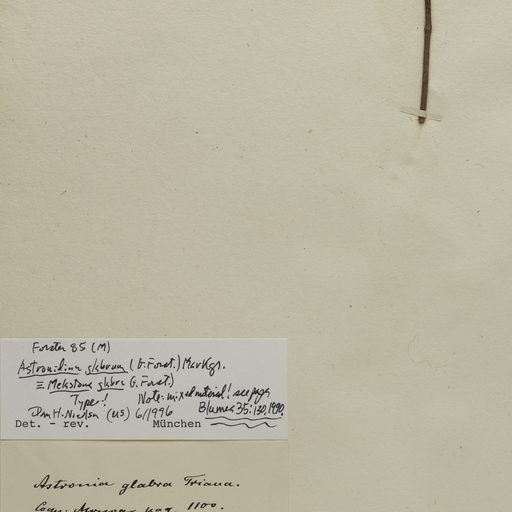 Forster 85 (M)
Astronidium glabrum (G. Forst.) Markgr.
≡ Melastoma glabra G. Forst.)
Type! Note: mixed material! see paper
Dan H. Nicolson (US) 6/1996 Blumea 35: 130, 1990.
Det. - rev. München
Astronia glabra Triana.
pag. 1100.